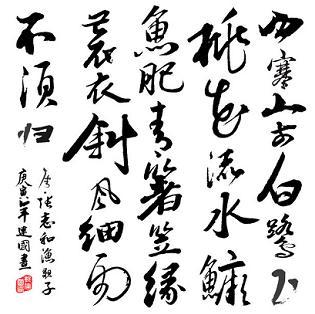 西塞山前白鹭飞
桃花流水鱖
魚肥青箬笠綠
蓑衣斜风细雨
不須归
唐·张志和漁歌子
庚寅年建國書